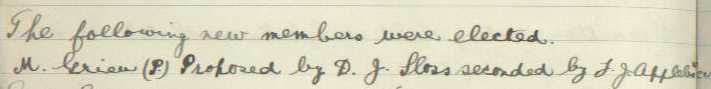 The following new members were elected.
M. Grieu (P.) Proposed by D. J. Sloss seconded by F. J. Appleby